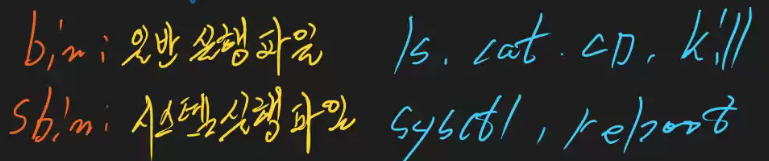 bin: 일반 실행파일 ls. cat. cp. kill
sbin: 시스템실행파일 sysctl, reboot